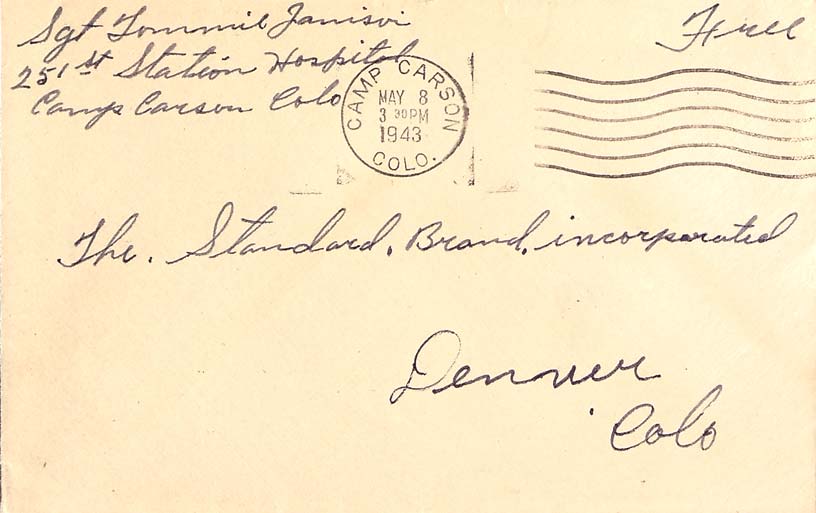 Sgt Tommie
251st Station Hospital
Camp Carson Colo
Free
CAMP CARSON
MAY 8
3 30 PM
1943
COLO.
The. Standard. Brand. incorporated
Denver
Colo